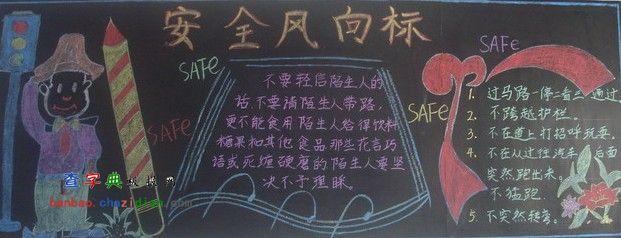 安全风向标
SAFe
SAFe
不要轻信陌生人的
话,不要请陌生人带路,
更不能食用陌生人给得饮料
糖果和其他食品那些花言巧
语或死缠硬磨的陌生人要坚
决不予理睬。
SAFe
SAFe
1. 过马路一停二看三通过
2. 不跨越护栏。
3. 不在道上打招呼玩耍。
4. 不在从过往汽车后面
突然跑出来。
不猛跑
5. 不突然转弯。
查字典
banbao.chazidian.com